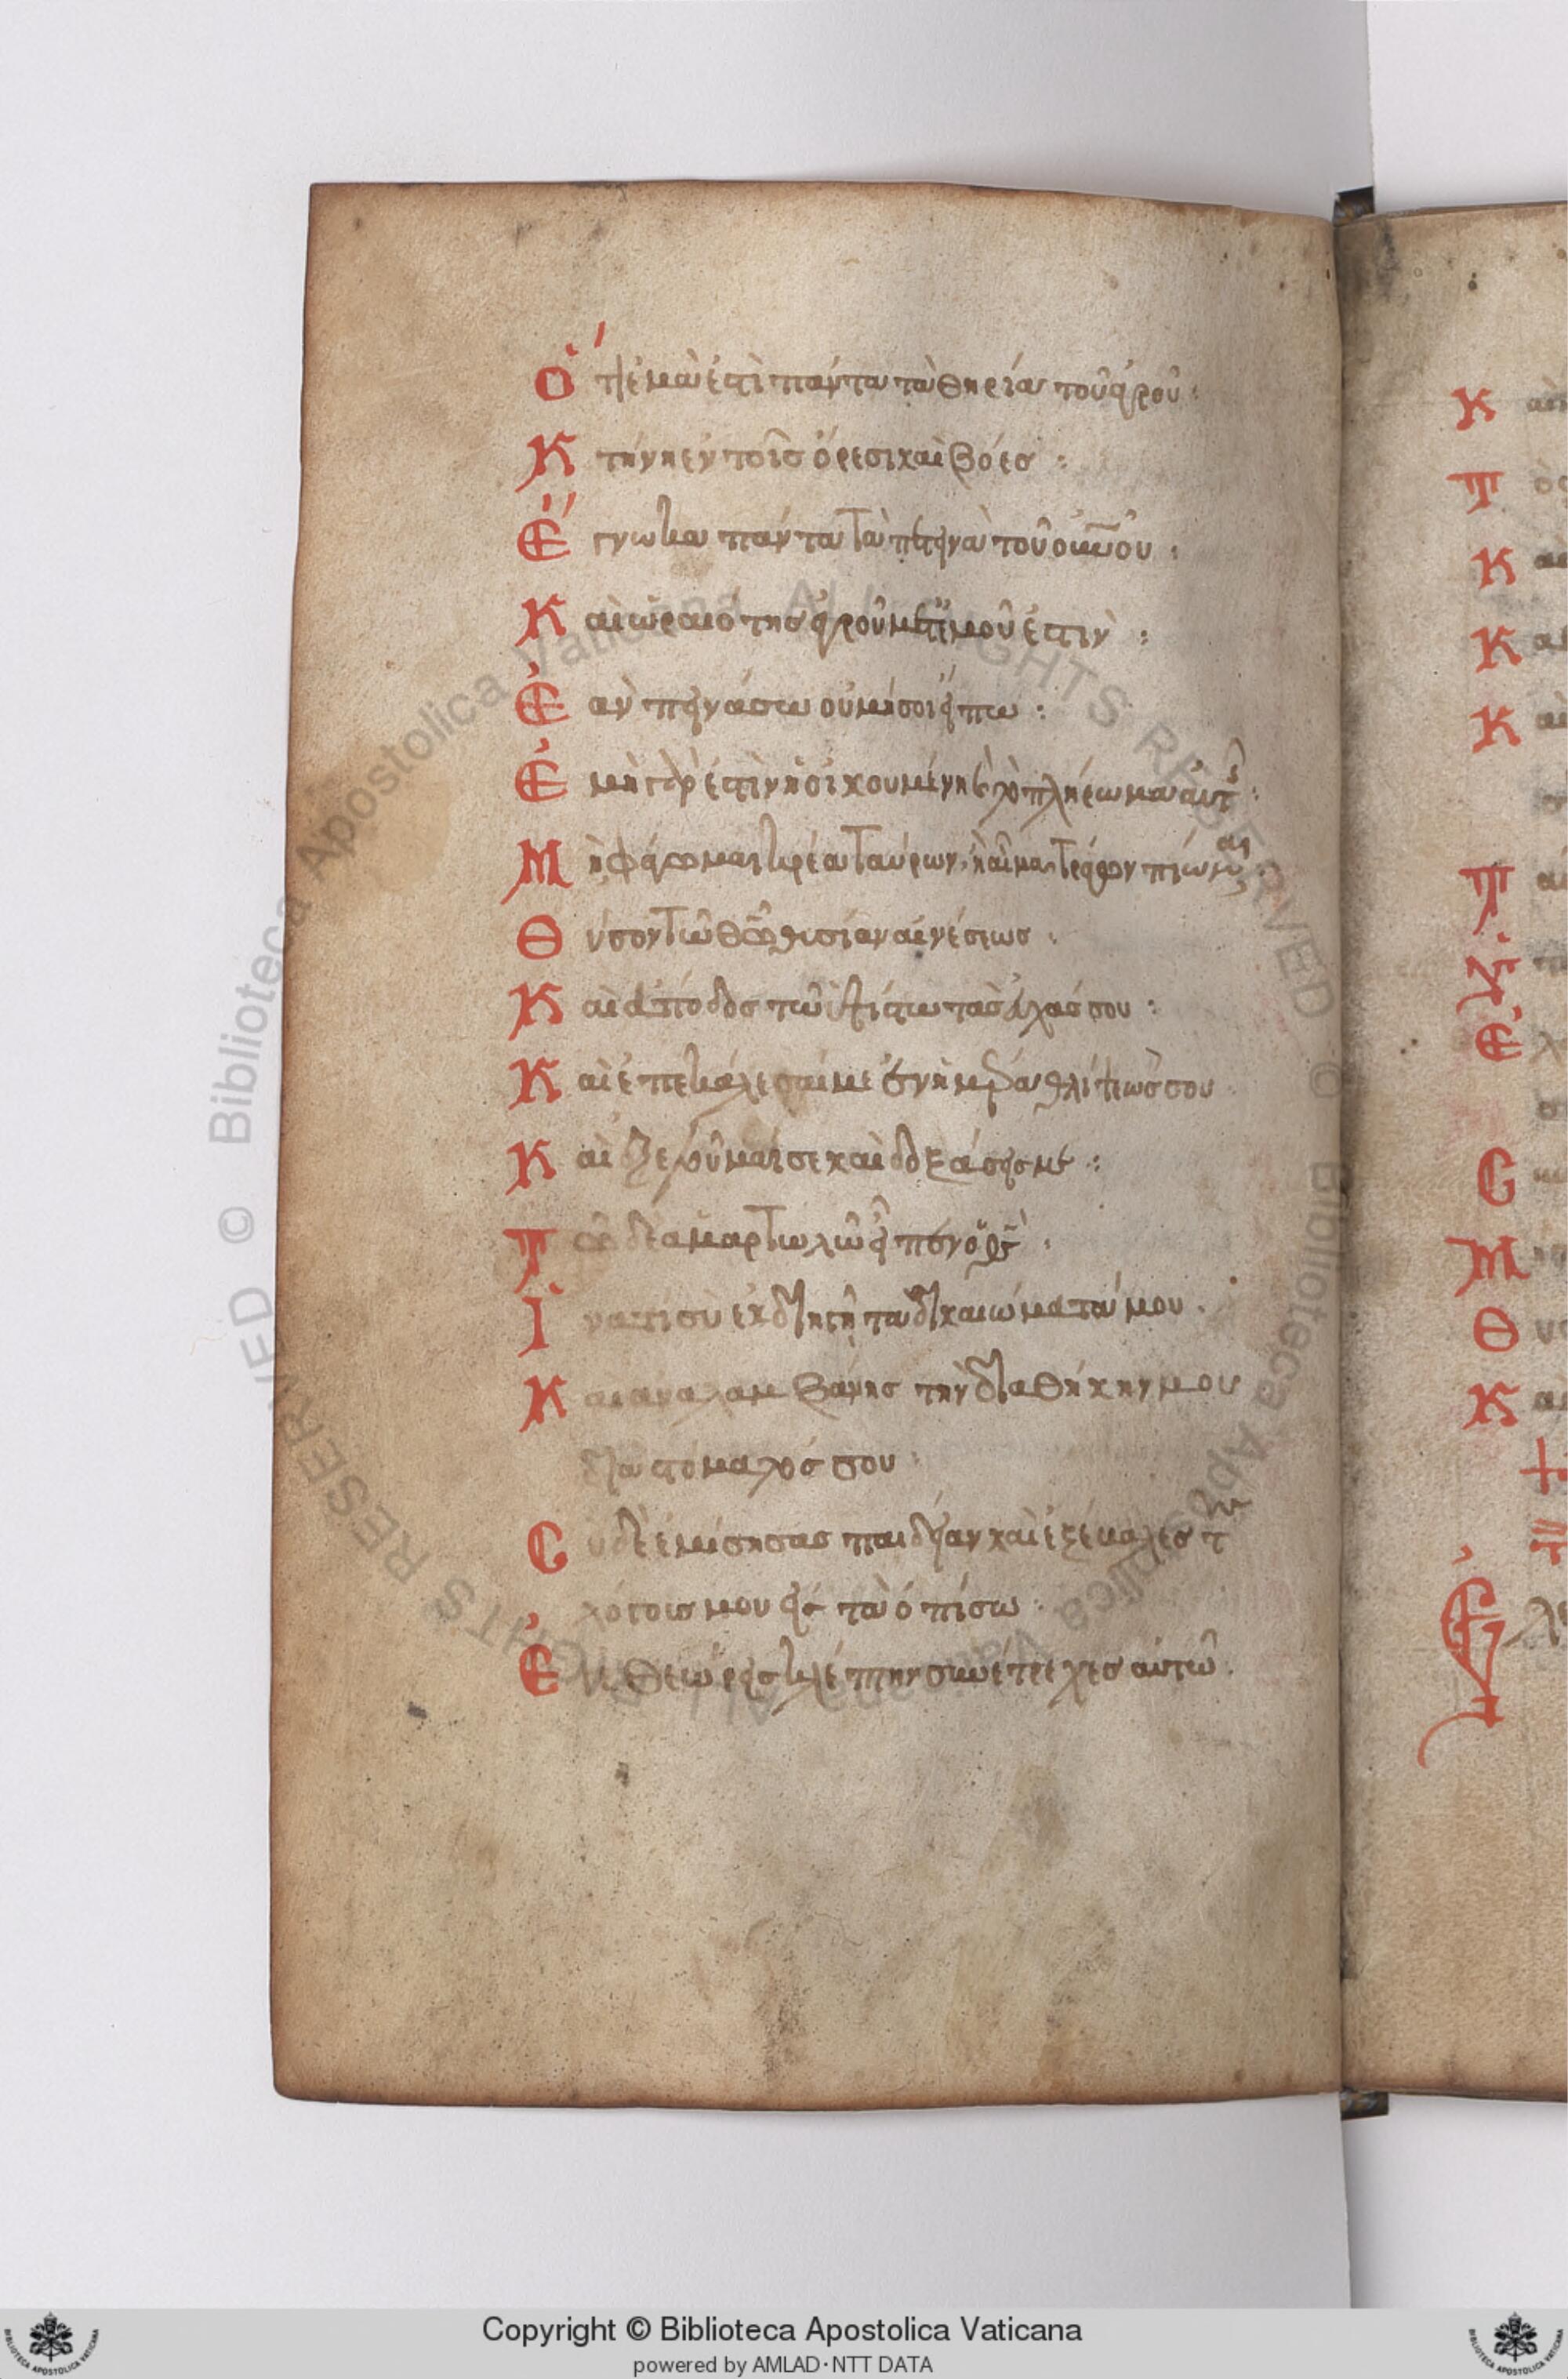 Ὅτι ἐμά ἐστι πάντα τὰ θηρία τοῦ ἀγροῦ :
Κτήνη ἐν τοῖς ὄρεσι καὶ βόες :
Ἔγνωκα πάντα τὰ πετεινὰ τοῦ οὐνοῦ :
Καὶ ὡραιότης ἀγροῦ μετ ἐμοῦ ἐστιν :
Ἐὰν πεινάσω οὐ μή σοι εἴπω :
Ἐμὴ γάρ ἐστιν ἡ οἰκουμένη καὶ τὸ πλήρωμα αὐτῆς :
Μὴ φάγομαι κρέα ταύρων, ἢ αἷμα τράγων πίωμαι :
Θύσον τῶ θῶ θυσίαν αἰνέσεως :
Καὶ ἀπόδος τῶ ὑψίστω τὰς εὐχάς σου :
Καὶ ἐπικάλεσαί με ἐν ἡμέρα θλίψεώς σου
Καὶ ἐξελοῦμαί σε καὶ δοξάσεις με :
Τῶ δὲ ἁμαρτωλῶ εἶπεν ὁ θς :
Ἱνατί σὺ ἐκδιηγῆ τὰ δικαιώματά μου .
Καὶ ἀναλαμβάνης τὴν διαθήκην μου
διὰ στόματός σου :
Σὺ δὲ ἐμίσησας παιδείαν καὶ ἐξέβαλες τοὺς
λόγους μου εἰς τὰ ὀπίσω :
Εἰ ἐθεώρεις κλέπτην συνέτρεχες αὐτῶ .
Κ
Τ
Κ
Κ
Κ
Τ
Κ
Ἐ
Σ
Μ
Θ
Κ
Ἐλε
© Biblioteca Apostolica Vaticana ALL RIGHTS RESERVED © Biblioteca Apostolica Vaticana ALL RIGHTS RESERVED
Copyright © Biblioteca Apostolica Vaticana
powered by AMLAD·NTT DATA